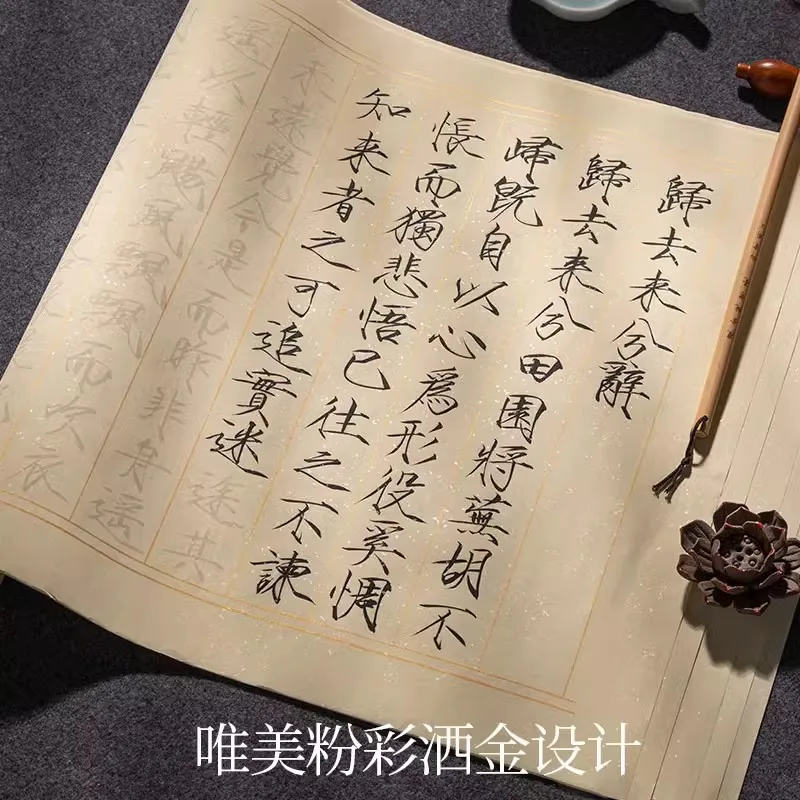 歸去来兮辭
歸去来兮田園將蕪胡不
歸既自以心爲形役奚惆
悵而獨悲悟已往之不諫
知来者之可追實迷途其
未遠覺今是而昨非舟遙
遙以輕颺風飄飄而吹衣
唯美粉彩洒金设计